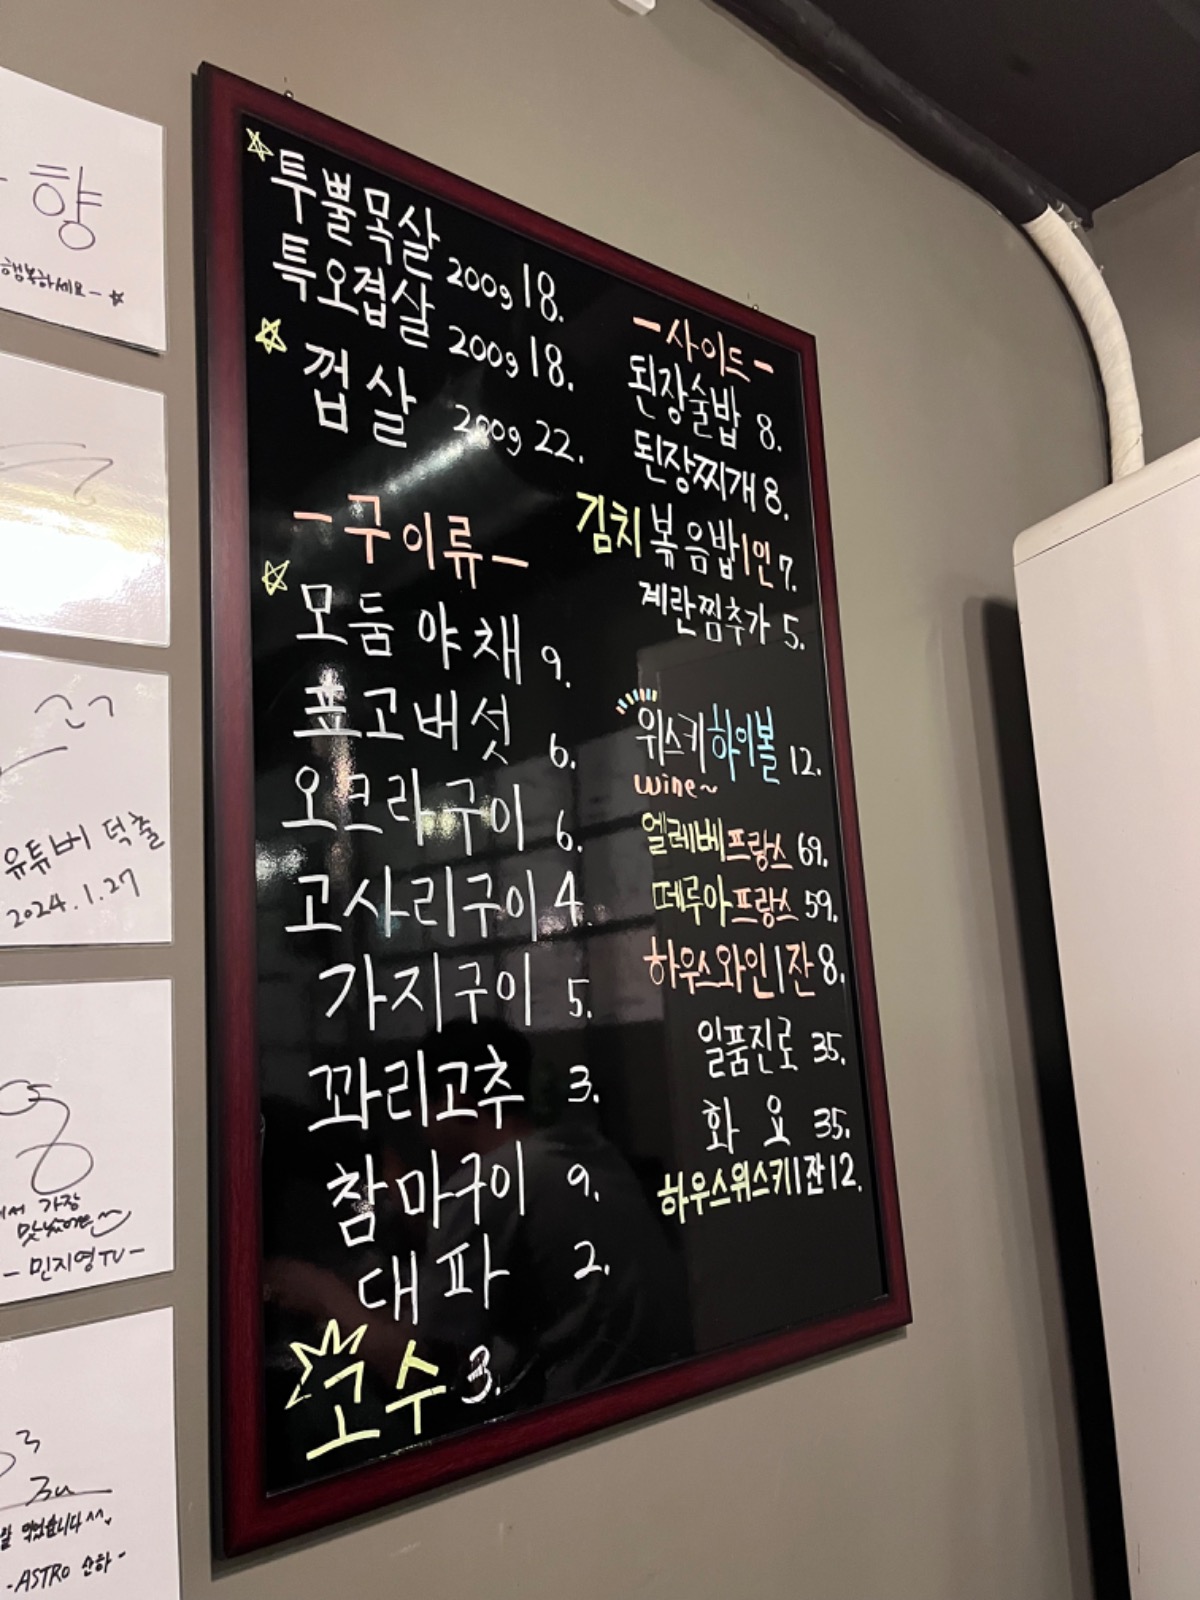 투뿔목살 200g 18.
특오겹살 200g 18.
껍살 200g 22.
-구이류-
모둠 야채 9.
표고버섯 6.
오크라구이 6.
고사리구이 4.
가지구이 5.
꽈리고추 3.
참마구이 9.
대파 2.
고수 3.
-사이드-
된장술밥 8.
된장찌개 8.
김치볶음밥1인 7.
계란찜추가 5.
위스키하이볼 12.
wine~
엘레베프랑스 69.
떼루아프랑스 59.
하우스와인1잔 8.
일품진로 35.
화요 35.
하우스위스키1잔 12.
향
행복하세요-☆
유튜버 덕출
2024.1.27
서 가장
맛있어요
-민지영TV-
잘 먹었습니다^^
-ASTRO 산하-